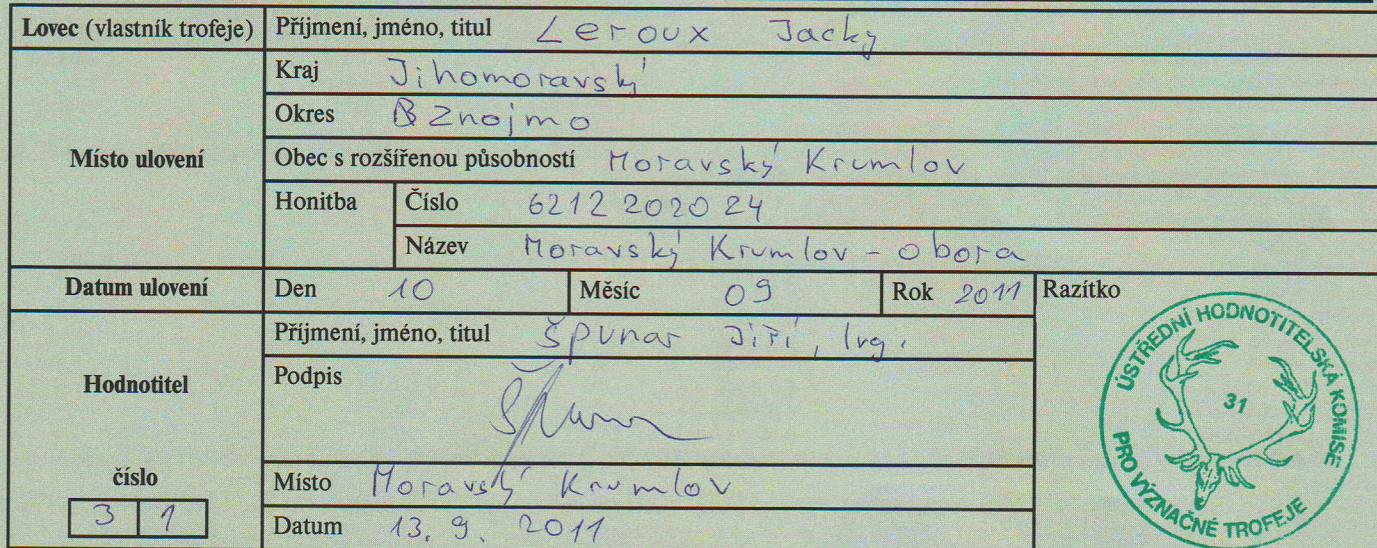 Lovec (vlastník trofeje) Příjmení, jméno, titul Leroux Jacky
Kraj Jihomoravský
Okres Znojmo
Místo ulovení Obec s rozšířenou působností Moravský Krumlov
Honitba Číslo 6212 2020 24
Název Moravský Krumlov - obora
Datum ulovení Den 10 Měsíc 09 Rok 2011 Razítko
Příjmení, jméno, titul Špunar Jiří, Ing.
Hodnotitel Podpis
číslo
31
Místo Moravský Krumlov
Datum 13. 9. 2011
ÚSTŘEDNÍ HODNOTITELSKÁ KOMISE
31
PRO VÝZNAČNÉ TROFEJE